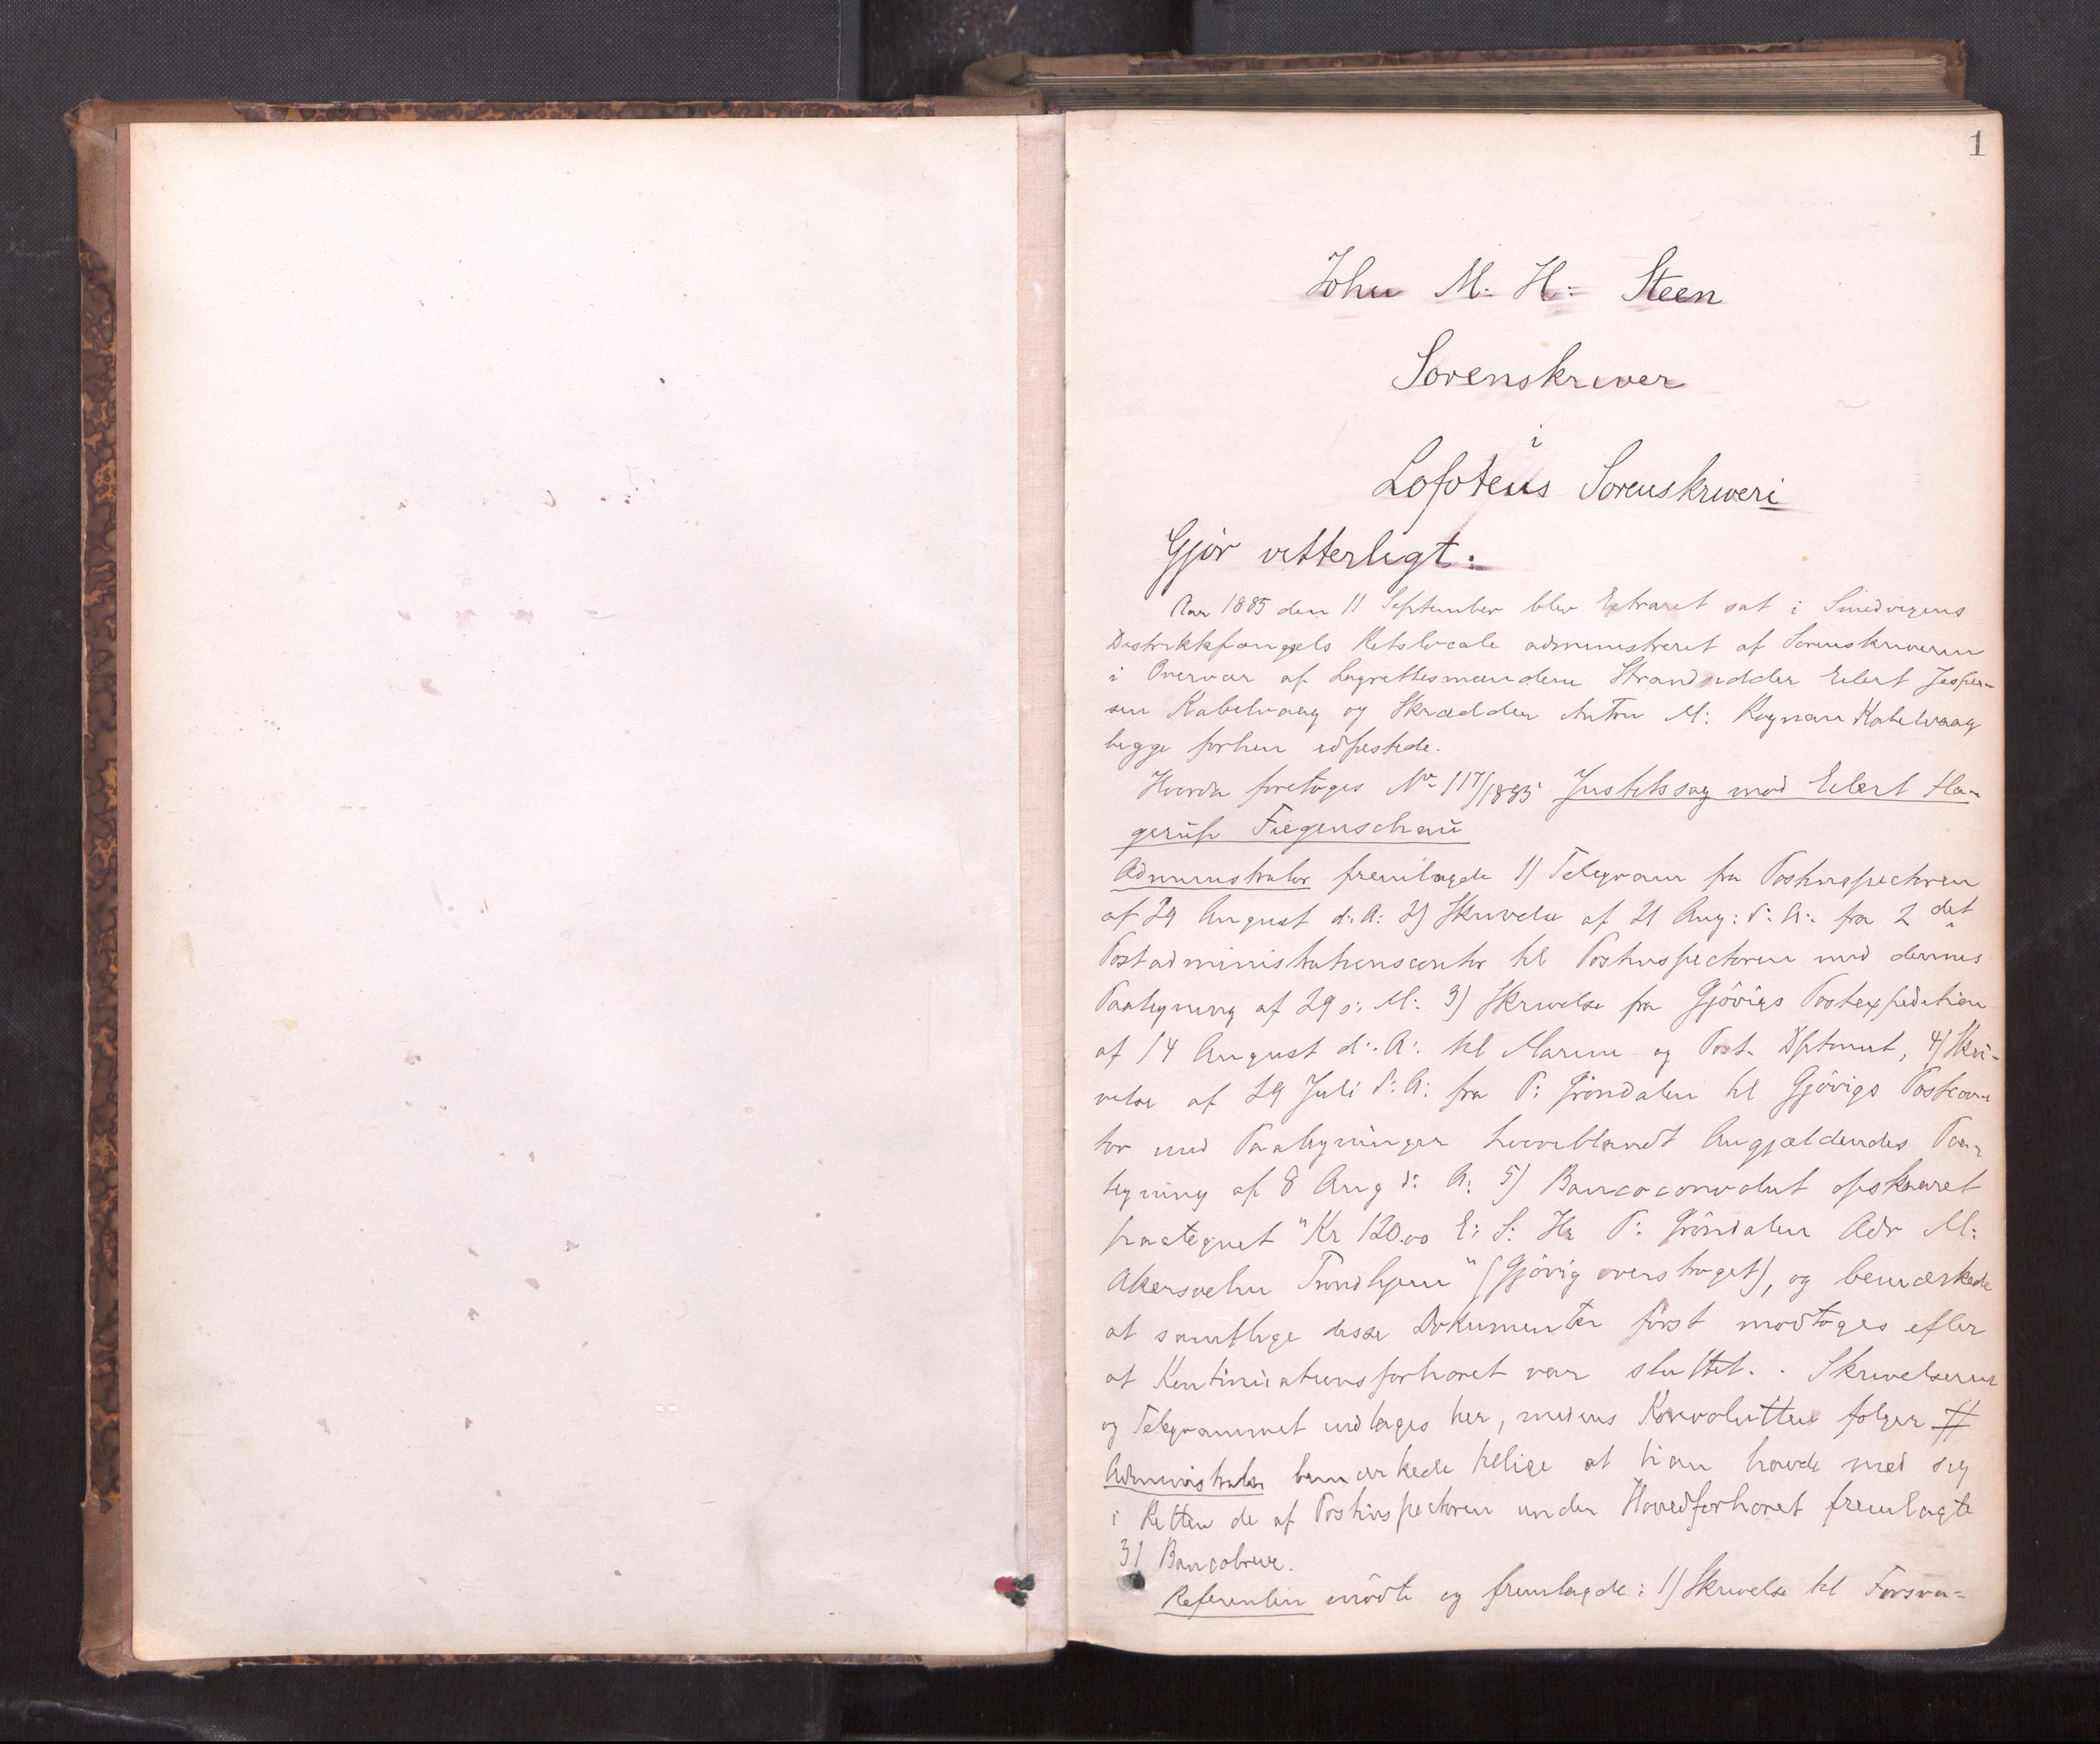 1
John M: H: Steen
Sorenskriver
i
Lofotens Sorenskriveri
Gjør vitterligt:
Aar 1885 den 11 September blev Extraret sat i Smedvigens
Distriktsfængsels Retslocale administreret af Sorenskriveren
i Overvær af Lagrettesmændene Strandsidder Eilert Jesper-
sen Kabelvaag og Skrædder Anton M: Kabelvaag
begge forhen edfæstede.
Hvorda foretoges No 117/1885 Justitssag mod Eilert Ha-
gerup Fiegenschau
Administrator fremlagde 1) Telegram fra Postinspectoren
af 29 August d: A: 2) Skrivelse af 21 Aug: d: A: fra 2 det
Postadministrationscontor til Postinspectoren med dennes
Paategning af 29 s: M: 3) Skrivelse fra Gjøvigs Postexpedition
af 14 August d: A: til Marine og Post- Dptmnt, 4) Skri-
velse af 29 Juli d: A: fra P: Grøndalen til Gjøvigs Postcon-
tor med Paategninger hvoriblandt Angjældendes Paa-
tegning af 8 Aug d: A: 5) Bancoconvolut opskaaret
paategnet "Kr 120.00 E: S: Hr P: Grøndalen Adr M:
Akersvehn Trondhjem" (Gjøvig overstrøget), og bemærkede
at samtlige disse Dokumenter først modtoges efter
at Kontinuationsforhøret var sluttet. Skrivelserne
og Telegrammet indtages her, medens Konvolutten følger #
Administrator bemærkede tillige at han havde med sig
i Retten de af Postinspectoren under Hovedforhøret fremlagte
31 Bancobreve.
Referenten mødte og fremlagde: 1) Skrivelse til Forsva-